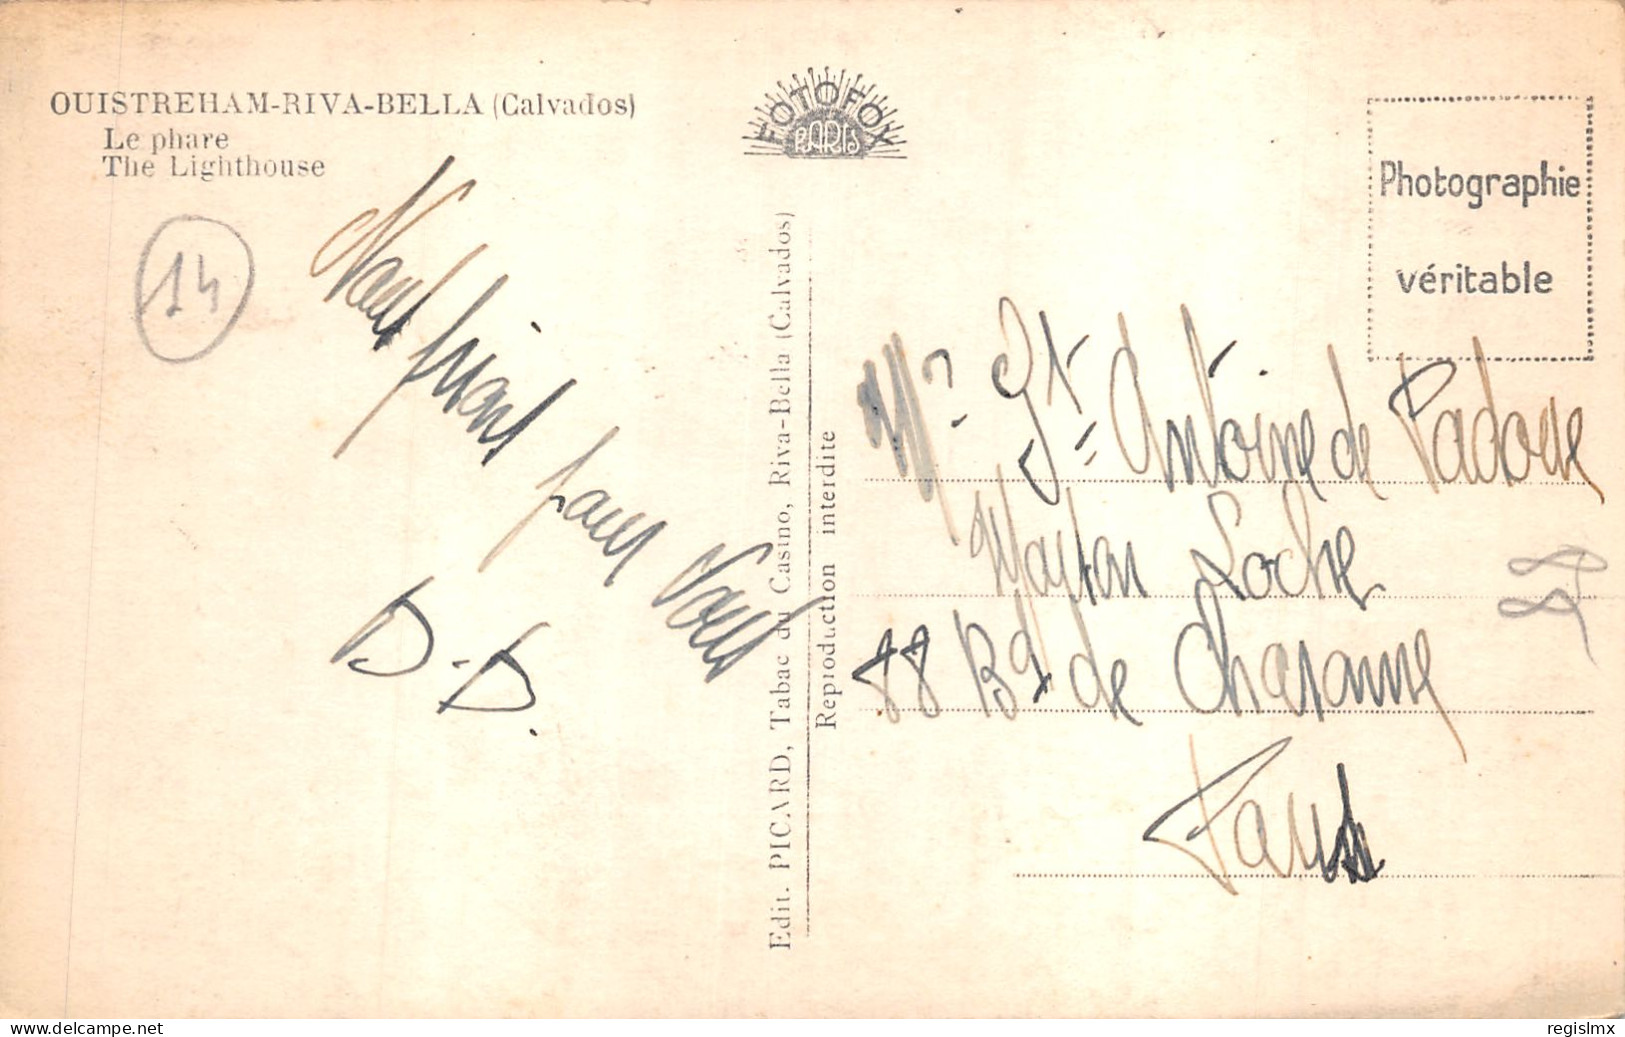 OUISTREHAM-RIVA-BELLA (Calvados)
Le phare
The Lighthouse
14
FOTOFOX
PARIS
Photographie
véritable
Nous prions pour vous
D.D.
Edit. PICARD, Tabac du Casino, Riva-Bella (Calvados)
Reproduction interdite
Mr St Antoine de Padoue
Loche
88 Bd de Charonne
Paris
www.delcampe.net
regislmx